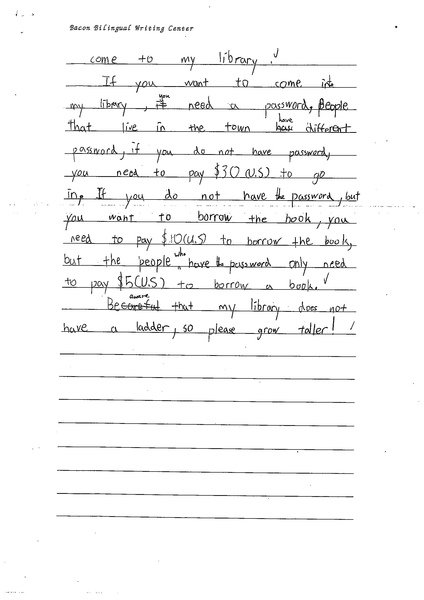 Bacon Bilingual Writing Center
come to my library.
If you want to come
my library, you need a password, People
that live in the town have different
password, if you do not have password,
you need to pay $30 (U.S) to go
in, If you do not have the password, but
you want to borrow the book, you
need to pay $10(U.S) to borrow the book,
but the people who have the password only need
to pay $5(U.S) to borrow a book.
Be aware that my library does not
have a ladder, so please grow taller!